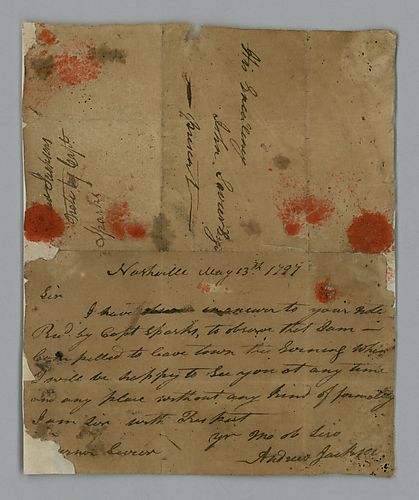 His Excellency
John Sevier Esqr
Present
note by Capt
Sparks
Nashville May 13th 1797
Sir
I have in answer to your note
Recd. by Capt Sparks, to observe that I am
Compelled to leave town this Evening When
I will be happy to See you at any time
and any place without any kind of formality
I am Sir with Respect
yr mo ob Serv
Andrew Jackson
Sevier